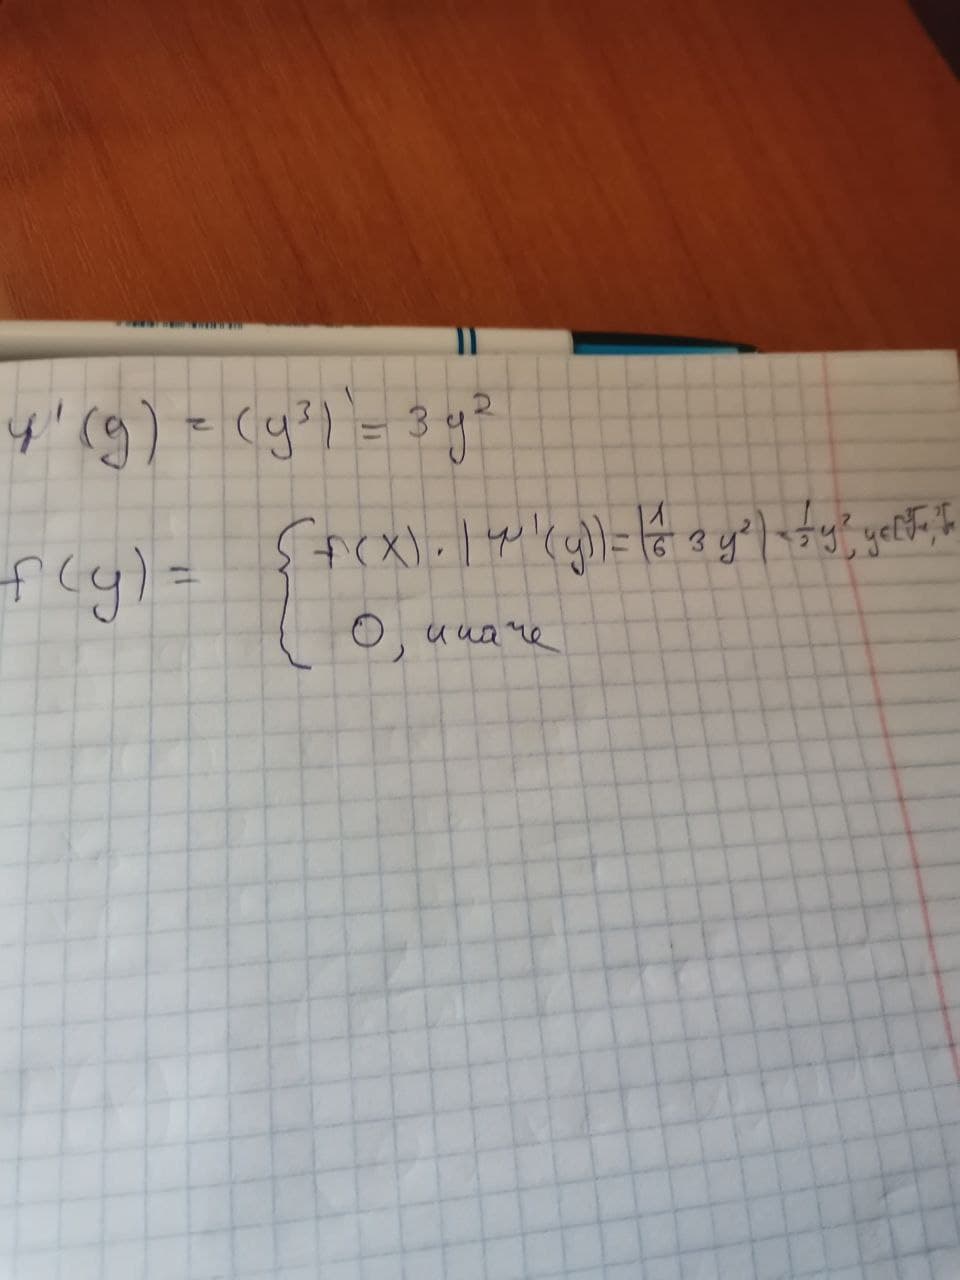 ψ'(y) = (y³)' = 3y²
f(y) = { f(x) · |ψ'(y)| = |1/6 3y²| = 1/2 y², y∈[∛
0, иначе